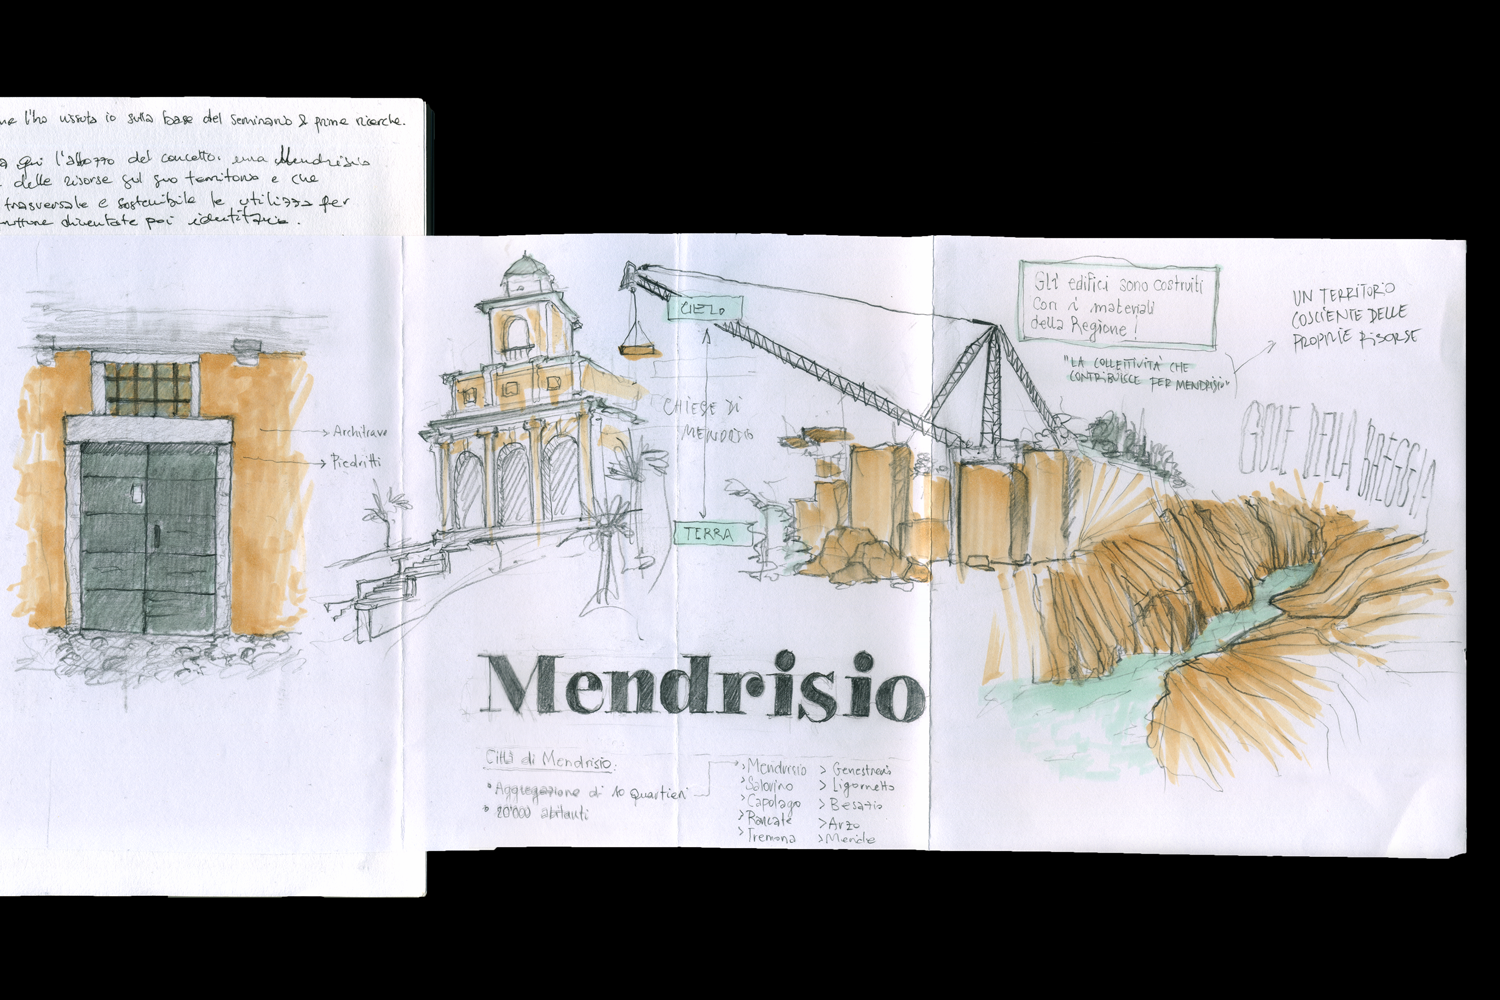 l'ho vissuta io sulla base del seminario & prime ricerche.
qui l'abbozzo del concetto. una Mendrisio
delle risorse sul suo territorio e che
trasversale e sostenibile le utilizza per
diventate poi identitarie.
Architrave
Piedritti
CIELO
CHIESE DI
MENDRISIO
TERRA
Gli edifici sono costruiti
con i materiali
della Regione!
"LA COLLETTIVITÀ CHE
CONTRIBUISCE PER MENDRISIO"
UN TERRITORIO
COSCIENTE DELLE
PROPRIE RISORSE
GOLE DELLA BREGGIA
Mendrisio
Città di Mendrisio:
• Aggregazione di 10 quartieri
abitanti
> Mendrisio > Genestrerio
> Salorino > Ligornetto
> Capolago > Besazio
> Rancate > Arzo
> Tremona > Meride